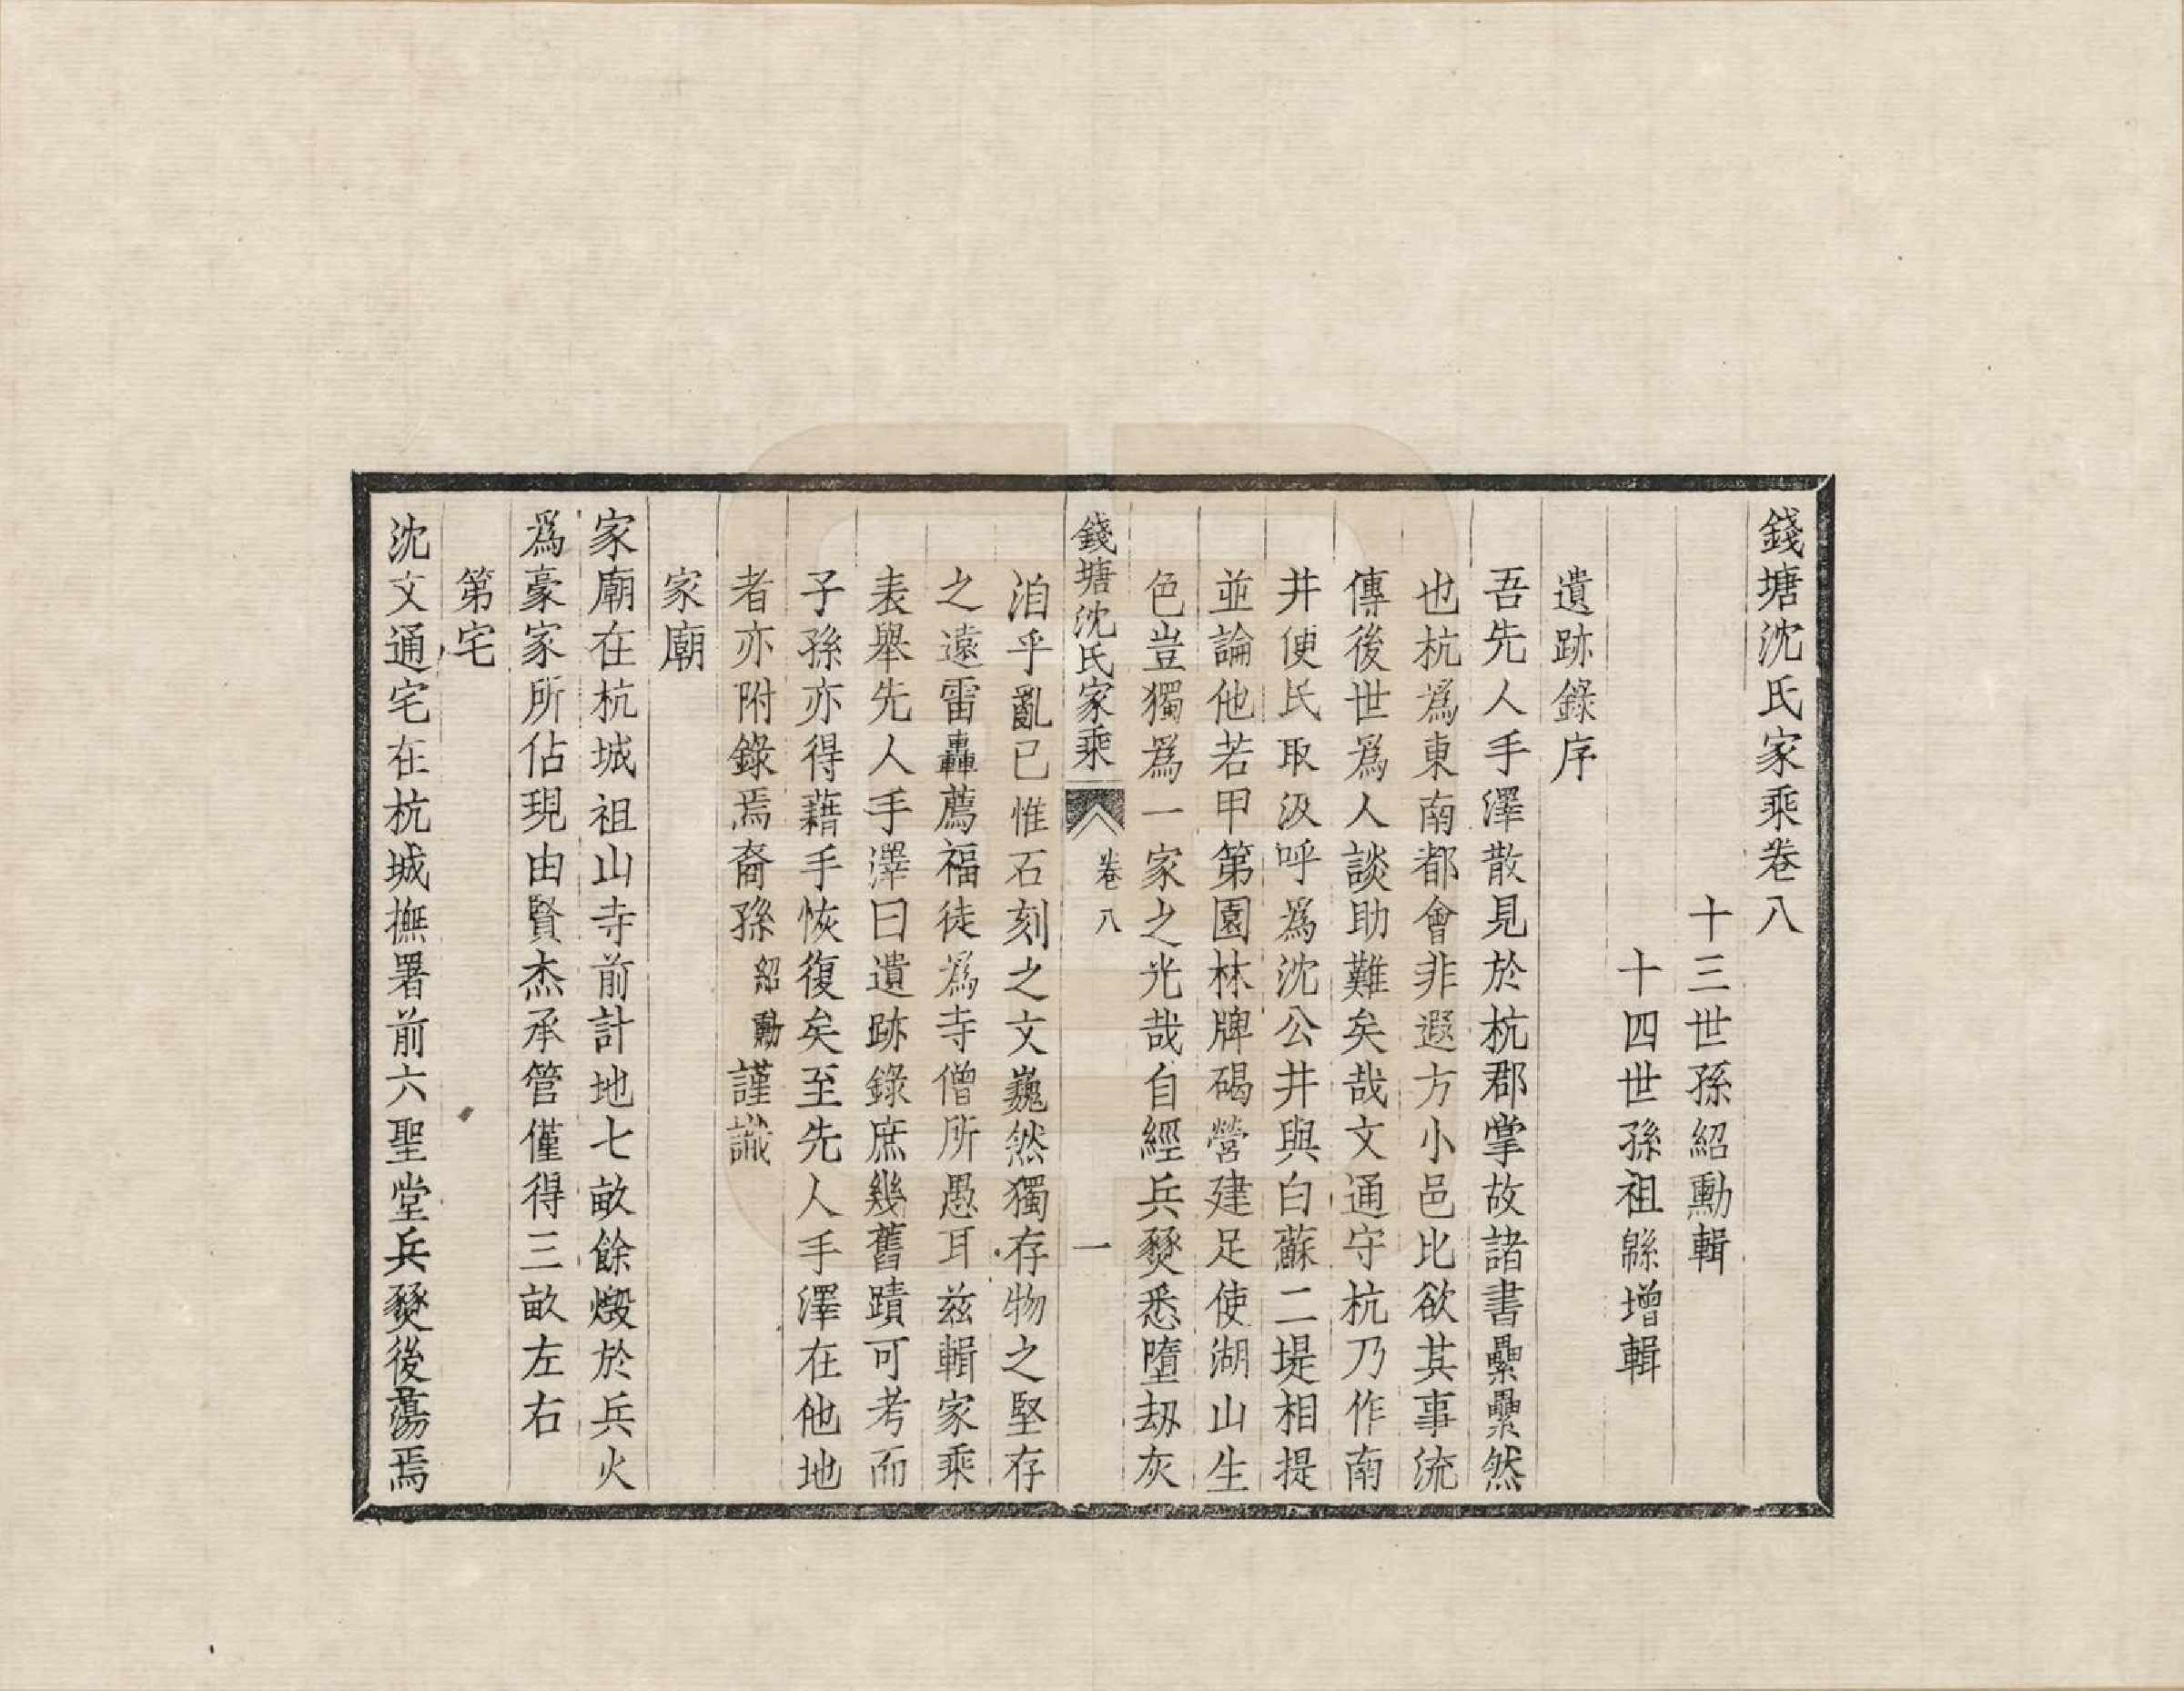 錢塘沈氏家乘卷八
十三世孫紹勳輯
十四世孫祖緜增輯
遺跡錄序
吾先人手澤散見於杭郡掌故諸書纍纍然
也杭爲東南都會非遐方小邑比欲其事流
傳後世爲人談助難矣哉文通守杭乃作南
井便民取汲呼爲沈公井與白蘇二堤相提
並論他若甲第園林牌碣營建足使湖山生
色豈獨爲一家之光哉自經兵燹悉墮劫灰
錢塘沈氏家乘 卷八 一
洎乎亂已惟石刻之文巍然獨存物之堅存
之遠雷轟薦福徒爲寺僧所愚耳兹輯家乘
表舉先人手澤曰遺跡錄庶幾舊蹟可考而
子孫亦得藉手恢復矣至先人手澤在他地
者亦附錄焉裔孫紹勳謹識
家廟
家廟在杭城祖山寺前計地七畝餘燬於兵火
爲豪家所佔現由賢杰承管僅得三畝左右
第宅
沈文通宅在杭城撫署前六聖堂兵燹後蕩焉